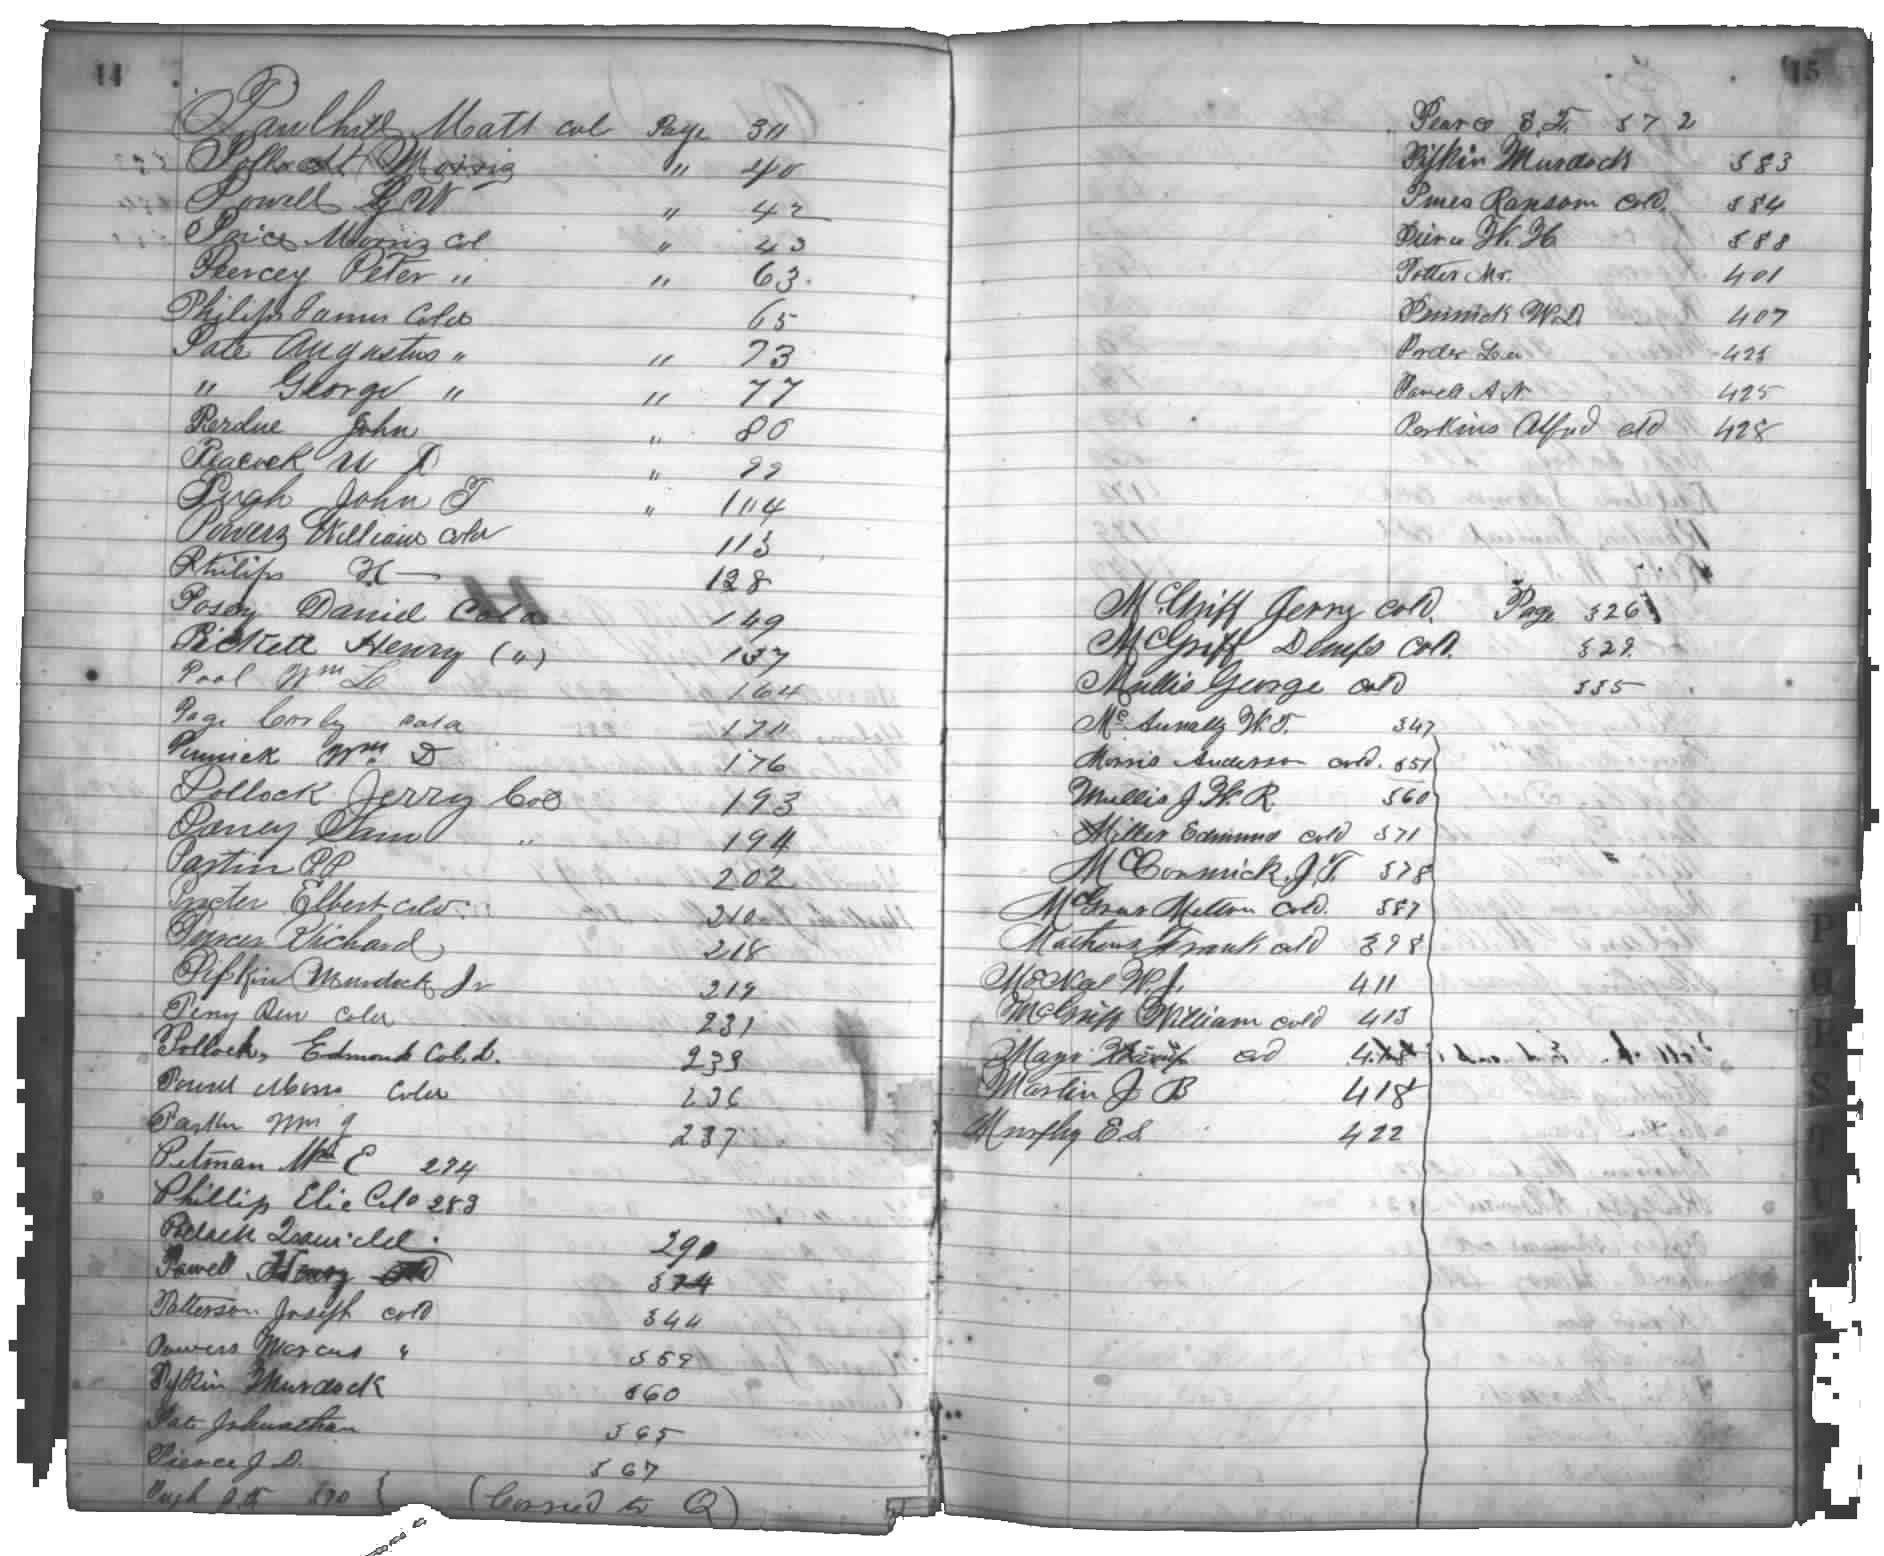 14
Paulhill Matt col Page 311
Pollock Morris " 40
Powell G W " 42
Price Morris Col " 43
Peercey Peter " " 63
Philips James Cold 65
Pate Augustus " " 73
" George " " 77
Perdue John " 80
Peacock W D " 99
Pugh John T " 104
Powers William Cold 113
Philips H 128
Posey Daniel Cold 149
Pickett Henry (") 137
Pool Wm L 164
Page Corby Cold 170
Pinnick Wm D 176
Pollock Jerry Col 193
Percey Sam " 194
Partin P P 202
Procter Elbert Cold 210
Purcer Richard 218
Pipkin Murdock Jr 219
Peny Ben Cold 231
Pollock, Edmond Col.d. 233
Powell Morris Cold 236
Parker Wm J 237
Pitman Mrs E 274
Phillip Elie Cold 283
Pollock 290
Powell Henry Cold 374
Patterson Joseph cold 344
Powers Marcus " 359
Pipkin Murdock 360
Pate Johnathan 365
Pierce J. D. 367
Pugh J. T. 370 (Carried to Q)
15
Pearce E. T. 372
Pipkin Murdock 383
Pines Ransom cold. 384
Pierce W. H. 388
Potter Mr. 401
Pennick W. D 407
Porder Lea 423
Powell A. N. 425
Perkins Alfred cld 428
McGriff Jerry cold. Page 326
McGriff Demps cold. 329
Mullis George cold 335
McAnnally W. T. 347
Morris Anderson cold. 351
Mullis J. W. R. 360
Miller Edmund cold 371
McCormick J. T. 378
McGraw Melton Cold. 387
Mathews Frank cold 398
McNeal W. J. 411
McGriff William cold 413
Mays cld 418
Martin J B 418
Murphy E. S. 422
P
Q
R
S
T
U
W